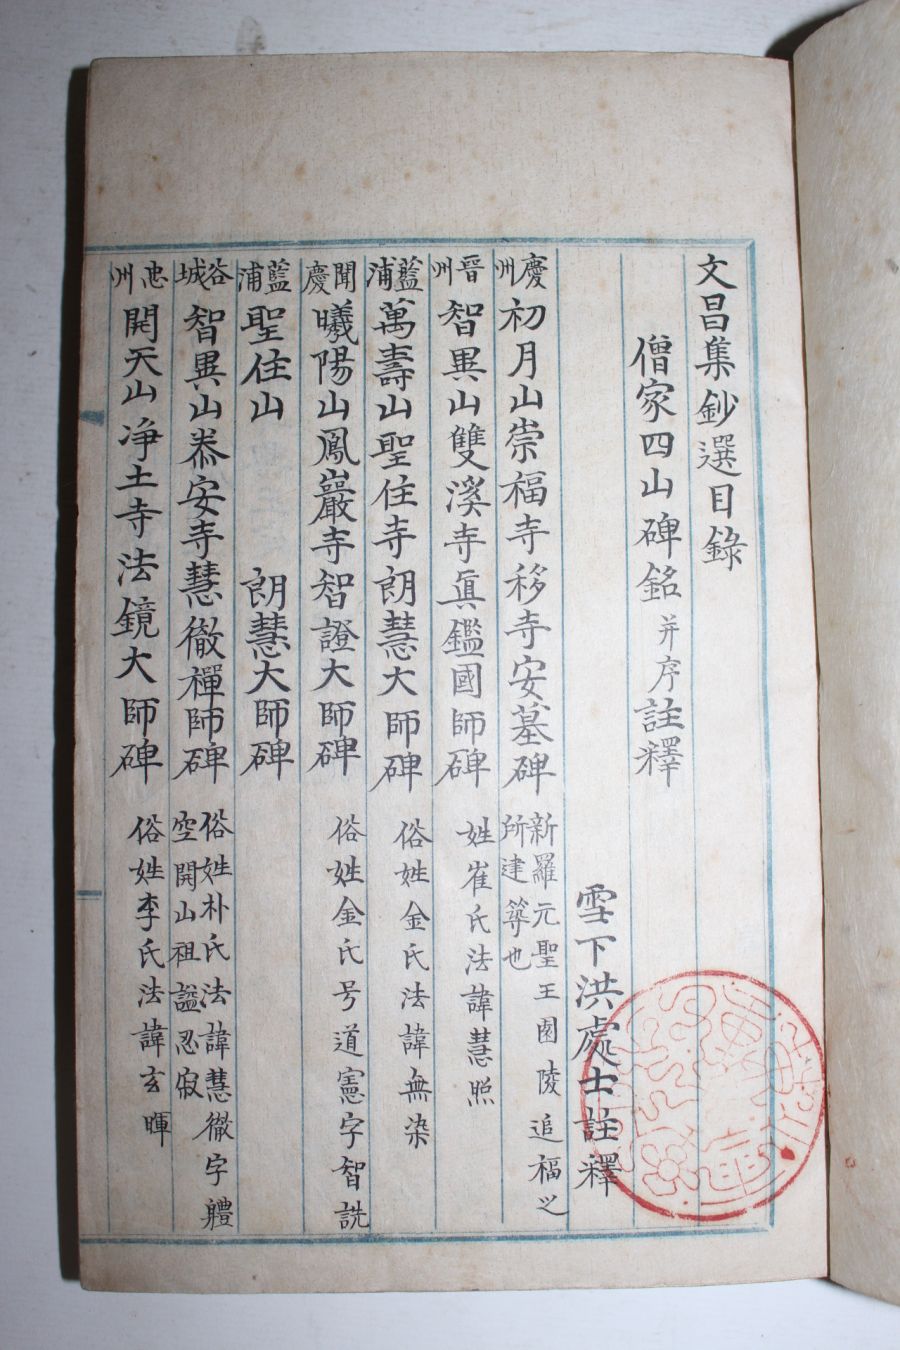 文昌集鈔選目錄
僧家四山碑銘并序註釋
雪下洪處士註釋
慶州 初月山崇福寺移寺安墓碑 新羅元聖王園陵追福之所建筹也
晋州 智異山雙溪寺眞鑑國師碑 姓崔氏法諱慧照
藍浦 萬壽山聖住寺朗慧大師碑 俗姓金氏法諱無染
聞慶 曦陽山鳳巖寺智證大師碑 俗姓金氏号道憲字智詵
藍浦 聖住山 朗慧大師碑
谷城 智異山泰安寺慧徹禪師碑 俗姓朴氏法諱慧徹字軆空開山祖謚忍寂
忠州 開天山净土寺法鏡大師碑 俗姓李氏法諱玄暉